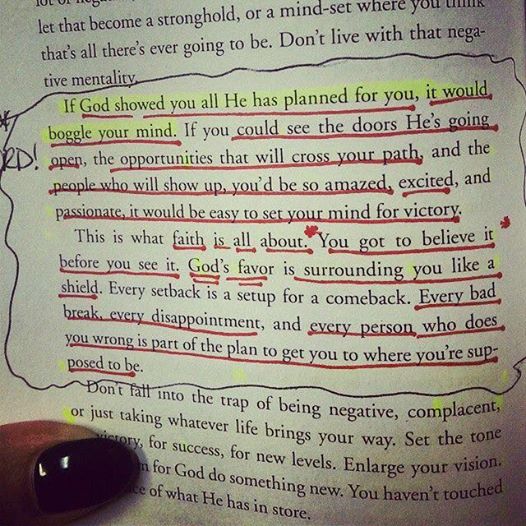 let that become a stronghold, or a mind-set where you think
that's all there's ever going to be. Don't live with that nega-
tive mentality.
If God showed you all He has planned for you, it would
boggle your mind. If you could see the doors He's going
open, the opportunities that will cross your path, and the
people who will show up, you'd be so amazed, excited, and
passionate, it would be easy to set your mind for victory.
RD!
This is what faith is all about. You got to believe it
before you see it. God's favor is surrounding you like a
shield. Every setback is a setup for a comeback. Every bad
break, every disappointment, and every person who does
you wrong is part of the plan to get you to where you're sup-
posed to be.
Don't fall into the trap of being negative, complacent,
or just taking whatever life brings your way. Set the tone
victory, for success, for new levels. Enlarge your vision.
for God do something new. You haven't touched
of what He has in store.